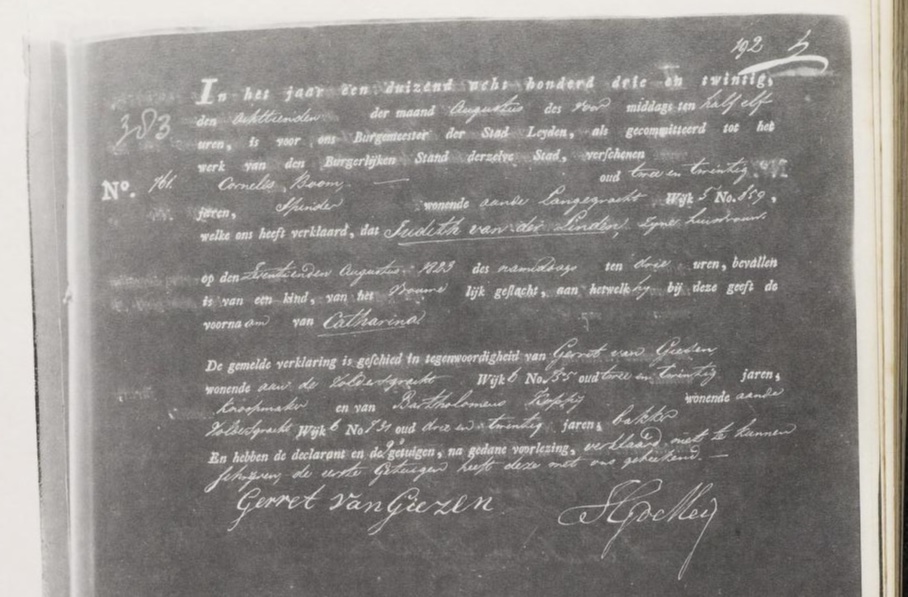 192
383
In het jaar een duizend acht honderd drie en twintig,
den achttienden der maand Augustus des voor middags ten half elf
uren, is voor ons Burgemeester der Stad Leyden, als gecommitteerd tot het
werk van den Burgerlijken Stand derzelve Stad, verschenen
No. 761. Cornelis Boom oud twee en twintig
jaren, Spinder wonende aande Langegracht Wijk 5 No. 859,
welke ons heeft verklaard, dat Judith van der Linden, zijne huisvrouw
op den Zeventienden Augustus 1823 des namiddags ten drie uren, bevallen
is van een kind, van het Vrouwe lijk geslacht, aan hetwelk hij bij deze geeft de
voornaam van Catharina
De gemelde verklaring is geschied in tegenwoordigheid van Gerret van Giezen
wonende aan de Voldersgracht Wijk 6 No. 55 oud twee en twintig jaren,
Knoopmaker en van Bartholomeus wonende aande
Voldersgracht Wijk 6 No 831 oud drie en twintig jaren, bakker
En hebben de declarant en de 2e getuigen, na gedane voorlezing, verklaard niet te kunnen
schrijven, de eerste Getuigen heeft deze met ons getekend.
Gerret van Giezen